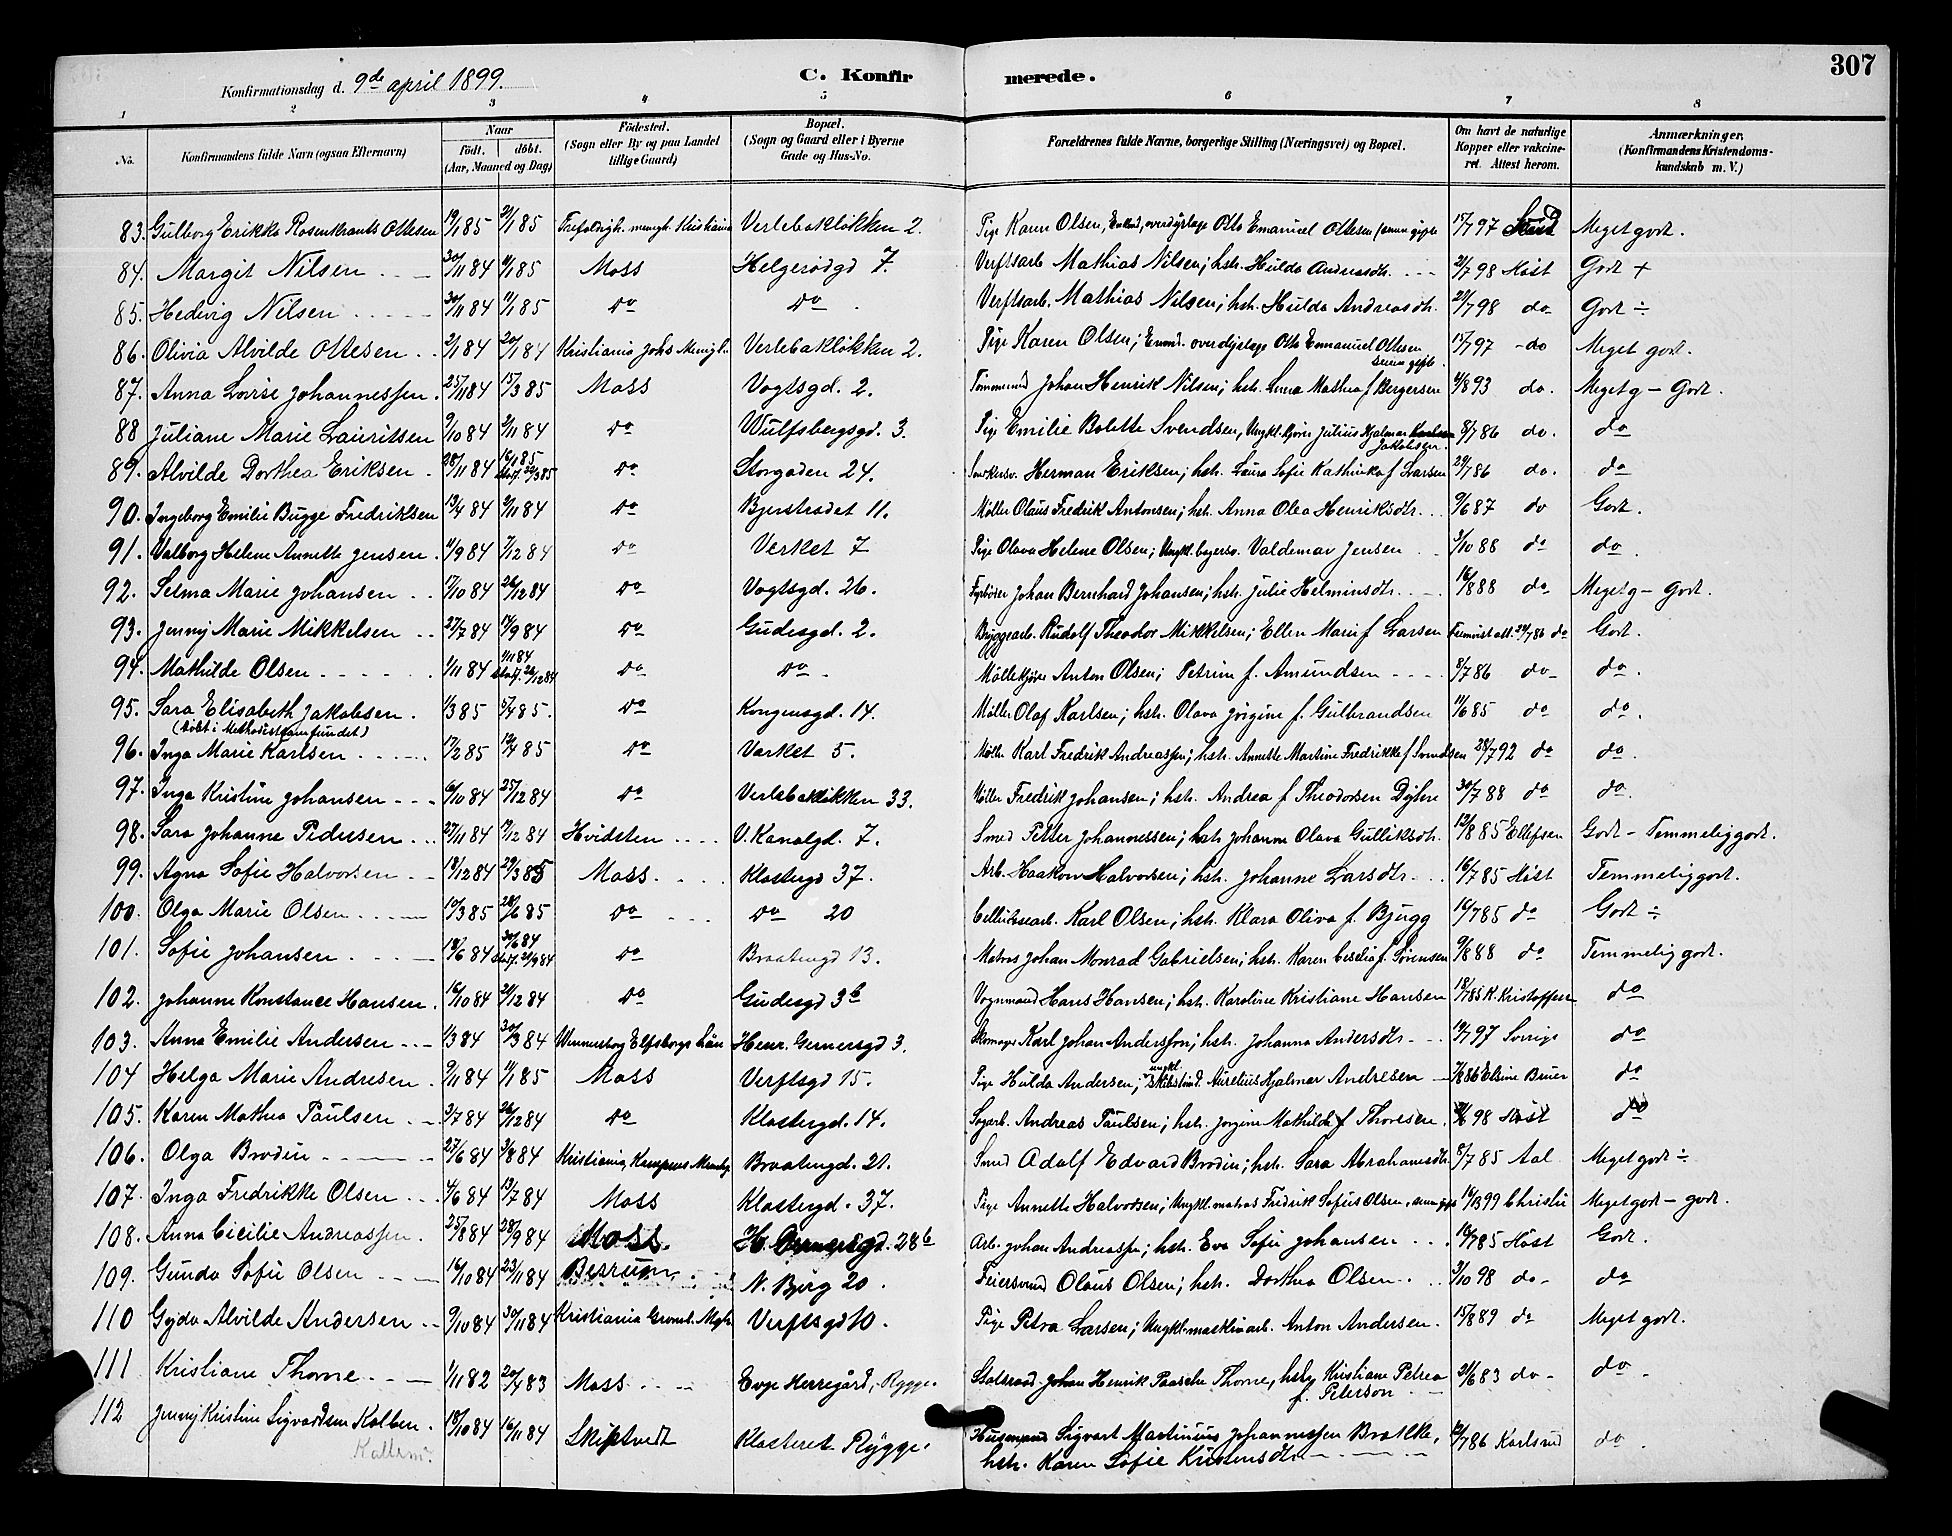 307
Konfirmationsdag d. 9de april 1899.
C. Konfirmerede.
1 2 3 4 5 6 7 8
No.
Konfirmandens fulde Navn (ogsaa Efternavn)
Naar
født. døbt.
(Aar, Maaned og Dag)
Fødested.
(Sogn eller By og paa Landet
tillige Gaard)
Bopæl.
(Sogn og Gaard eller i Byerne
Gade og Hus-No.
Forældrenes fulde Navne, borgerlige Stilling (Næringsvei) og Bopæl.
Om havt de naturlige
Kopper eller vakcine-
ret. Attest herom.
Anmærkninger.
(Konfirmandens Kristendoms-
kundskab m. V.)
83. Gulborg Erikka Rosenkrants Ottesen 19/1 85 21/1 85 Trefoldigh. mengh. Kristiania Verlebakløkken 2. Pige Karen Olsen, overdyrlæge Otto Emanuel Ottesen 15/7 97 Meget godt.
84. Margit Nilsen 30/11 84 11/1 85 Moss Helgerødgd 7. Verftsarb. Mathias Nilsen; hstr. Hulda Andreasdtr. 21/7 98 Høst Godt +
85. Hedvig Nilsen 30/11 84 11/1 85 do do Verftsarb. Mathias Nilsen; hstr. Hulda Andreasdtr. 21/7 98 do Godt ÷
86. Olivia Alvilde Ottesen 2/1 84 20/1 84 Kristiania Johs Mengh. Verlebakløkken 2. Pige Karen Olsen; overdyrlæge Otto Emmanuel Ottesen 15/7 97 do Meget godt.
87. Anna Lovise Johannessen. 25/11 84 15/3 85 Moss Vogtsgd. 2. Tømmermd Johan Henrik Nilsen; hstr. Lena Mathea f. Bergersen 4/8 93 do. Meget g - Godt.
88 Juliane Marie Lauritsen 9/10 84 2/11 84 do Wulfsbergsgd. 3. Pige Emilie Bolette Svendsen, Ungkl. Julius Hjalmar Jakobsen 8/7 86 do. do
89. Alvilde Dorthea Eriksen. 28/11 84 16/1 85 do Storgaden 24. Herman Eriksen; hstr. Laura Sofie Kathinka f. Larsen 29/7 86 do. do
90. Ingeborg Emilie Bugge Fredriksen 13/4 84 2/11 84 do Bjerstrædet 11. Møller Olaus Fredrik Antonsen; hstr. Anna Olea Henriksdtr. 9/6 87 do Godt.
91. Valborg Helene Annette Jensen. 11/9 84 7/12 84 do Verket 7 Pige Olava Helene Olsen; Ungkl. Valdemar Jensen 3/10 88 do do.
92. Selma Marie Johansen 17/10 84 26/12 84 do Vogtsgd. 26. Fyrbøder Johan Bernhard Johansen; hstr. Julie Helminsdtr. 16/8 88 do Meget g - Godt.
93. Jenny Marie Mikkelsen 27/7 84 14/9 84 do Gudesgd. 2. Bryggearb. Rudolf Theodor Mikkelsen; Ellen Marie f. Larsen Fremvist att. 29/7 86 do Godt.
94. Mathilde Olsen 1/11 84 do do Møllekjører Anton Olsen; Petrine f. Amundsen 8/7 86 do do.
95. Sara Elisabeth Jakobsen. 1/3 85 5/4 85. do Kongensgd. 14. Møller Olaf Karlsen; hstr. Olava Jørgine f. Gulbrandsen 11/6 85 do do.
(døbt i Methodistsamfundet)
96. Inga Marie Karlsen 17/2 85 12/4 85 do Værket 5. Møller Karl Fredrik Andreassen; hstr. Annette Martine Fredrikke f. Svendsen 28/7 92 do do.
97. Inga Kristine Johansen 6/10 84 25/12 84 do Verlebakløkken 33. Møller Fredrik Johansen; hstr. Andrea f. Theodorsen Dyhre 30/7 88 do do.
98. Sara Johanne Pedersen 27/11 84 12 84 Hvidsten V. Kanalgd. 7. Smed Petter Johannessen; hstr. Johanne Olava Gulliksdtr. 12/8 85 Ellefsen Godt - Temmelig godt.
99. Agna Sofie Halvorsen 18/12 84 29/3 85 Moss. Klostergd 37. Arb. Haakon Halvorsen; hstr. Johanne Larsdtr. 16/7 85 Høst Temmelig godt.
100. Olga Marie Olsen 10/3 85 28/6 85 do do 20 Cellulosearb. Karl Olsen; hstr. Klara Oliva f. Bjugg 16/7 85 do Godt ÷
101. Sofie Johansen 18/6 84 30/6 84 do Braatengd 13. Matros Johan Monrad Gabrielsen; hstr. Karen Cecilia f. Sørensen 9/8 88 do Temmelig godt.
102. Johanne Konstance Hansen. 16/10 84 21/12 84 do Gudesgd 3b Vognmand Hans Hansen; hstr. Karoline Kristiane Hansen 18/7 85 K. Kristoffersen do
103. Anna Emilie Andersen 1/3 84 30/3 84 Wennersborg Elfsborgs Län Henr. Gernersgd 3. Skomager Karl Johan Andersson; hstr. Johanna Andersdtr. 19/7 97 Sverige do
104 Helga Marie Andresen. 9/11 84 11/1 85 Moss Verftsgd 15. Pige Hulda Andersen; ungkl. Aurelius Hjalmar Andresen 7/8 86 Elsine Bruer do
105. Karen Mathea Paulsen 2/7 84 26/12 84 do Klostergd. 14. Sagarb. Andreas Paulsen; hstr. Jørgine Mathilde f. Thoresen. 98 Høst do
106. Olga Brodin 27/6 84 3/8 84 Kristiania, Kampens Menigh. Braatengd. 21. Smed Adolf Edvard Brodin; hstr. Sara Abrahamsdtr. 8/7 85 Aal Meget godt ÷
107. Inga Fredrikke Olsen 4/6 84 13/7 84 Moss Klostergd. 37. Pige Annette Halvorsen; Ungkl. matros Fredrik Sofius Olsen, Christie Meget godt - godt.
108. Anna Cicilie Andreassen. 25/8 84 28/9 84 Moss. H. Gernersgd. 28b Arb. Johan Andreassen; hstr. Eva Sofie Johansen 16/7 85 Høst Godt.
109. Gunda Sofie Olsen 16/10 84 23/11 84 N. Bjerg 20. Feiersvend Olaus Olsen; hstr. Dorthea Olsen 3/10 98 do do
110 Gyda Alvilde Andersen 9/10 84 30/11 84 Kristiania Grønl. Mgh. Verftsgd 10. Pige Petra Larsen; Ungkl. maskinarb. Anton Andersen. 15/8 89 do Meget godt.
111 Kristiane Thorne 1/11 82 20/4 83 Moss Evje Herregård, Rygge. Statsraad Johan Henrik Paasche Thorne, hstr. Kristiane Petrea
f. Peterson 21/6 83 do do.
112 Jenny Kristine Sigvardsen Kolben. 18/10 84 16/11 84 Skiptvedt Klosteret Rygge. Husmand Sigvart Martinius Johannessen Bratlke, 86 Karlsrud do.
hstr. Karen Sofie Kristensdtr.